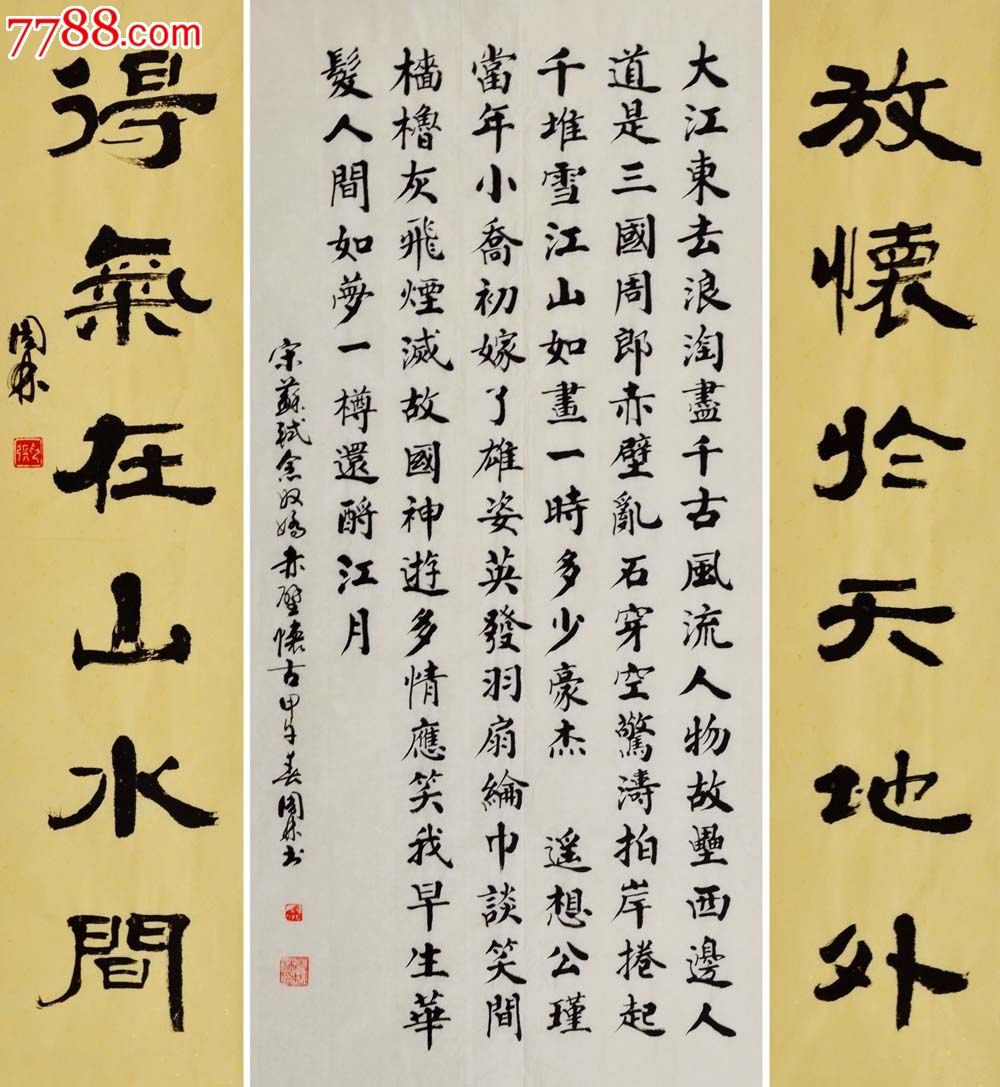 7788.com
中国收藏热线
放懷於天地外
大江東去浪淘盡千古風流人物故壘西邊人
道是三國周郎赤壁亂石穿空驚濤拍岸捲起
千堆雪江山如畫一時多少豪杰 遥想公瑾
當年小喬初嫁了雄姿英發羽扇綸巾談笑間
檣櫓灰飛煙滅故國神遊多情應笑我早生華
髮人間如夢一樽還酹江月
宋蘇軾念奴嬌赤壁懷古甲午春周林书
得氣在山水間
周林